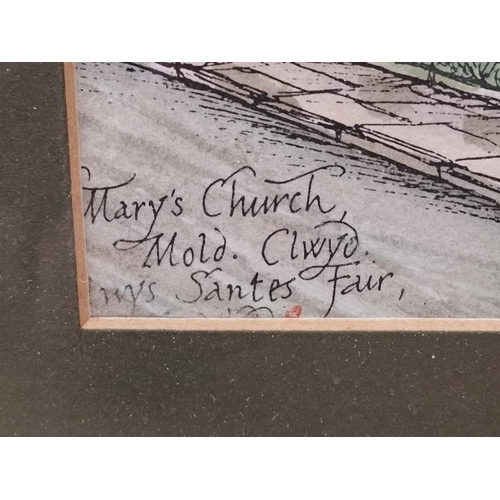 Mary's Church,
Mold. Clwyd.
lwys Santes Fair,